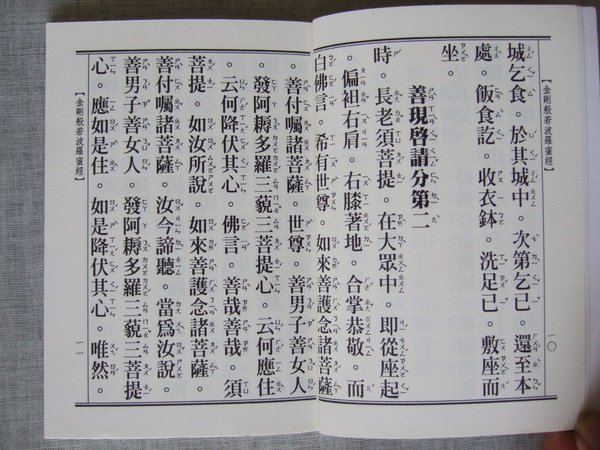 城乞食。於其城中。次第乞已。還至本
處。飯食訖。收衣鉢。洗足已。敷座而
坐。
善現啓請分第二
時。長老須菩提。在大眾中。即從座起
。偏袒右肩。右膝著地。合掌恭敬。而
白佛言。希有世尊。如來善護念諸菩薩
。善付囑諸菩薩。世尊。善男子善女人
。發阿耨多羅三藐三菩提心。云何應住
。云何降伏其心。佛言。善哉善哉。須
菩提。如汝所說。如來善護念諸菩薩。
善付囑諸菩薩。汝今諦聽。當為汝說。
善男子善女人。發阿耨多羅三藐三菩提
心。應如是住。如是降伏其心。唯然。
【金剛般若波羅蜜經】
一〇
【金剛般若波羅蜜經】
一一